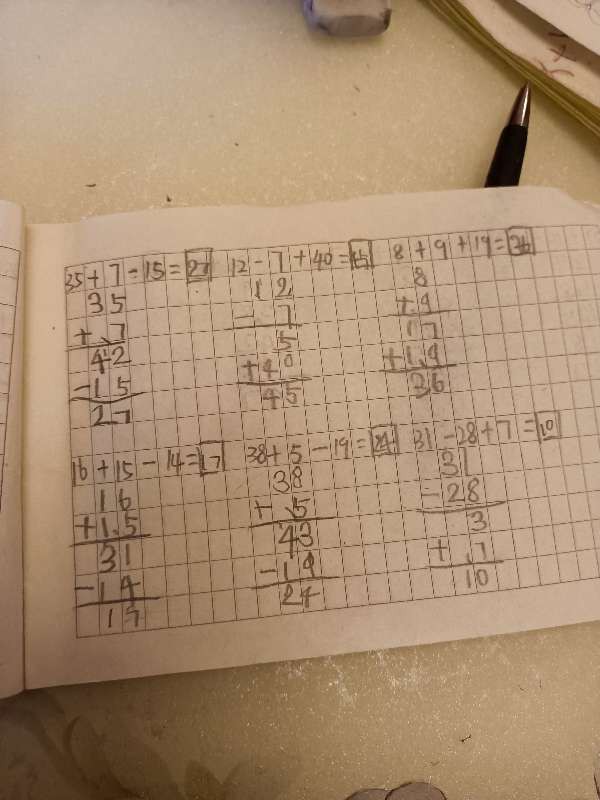 35+7-15=27
35
+ 7
42
-15
27
12-7+40=45
12
- 7
5
+40
45
8+9+19=36
8
+9
17
+19
36
16+15-14=17
16
+15
31
-14
17
38+5-19=24
38
+ 5
43
-19
24
31-28+7=10
31
-28
3
+ 7
10